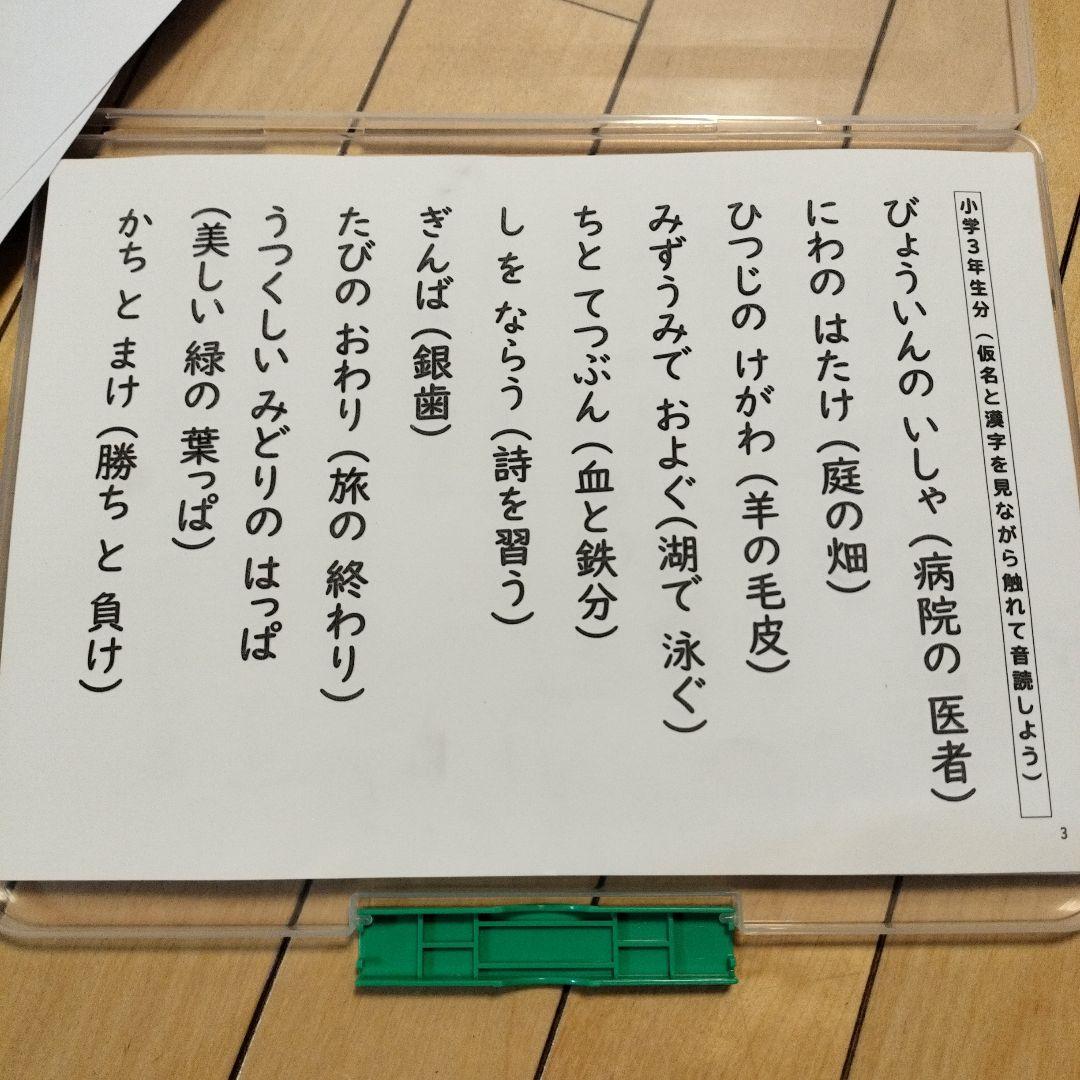 小学3年生分（仮名と漢字を見ながら触れて音読しよう）
びょういんの いしゃ（病院の 医者）
にわの はたけ（庭の 畑）
ひつじの けがわ（羊の 毛皮）
みずうみで およぐ（湖で 泳ぐ）
ちと てつぶん（血と 鉄分）
し を ならう（詩を 習う）
ぎんば（銀歯）
たびの おわり（旅の 終わり）
うつくしい みどりの はっぱ
（美しい 緑の 葉っぱ）
かち と まけ（勝ち と 負け）
3